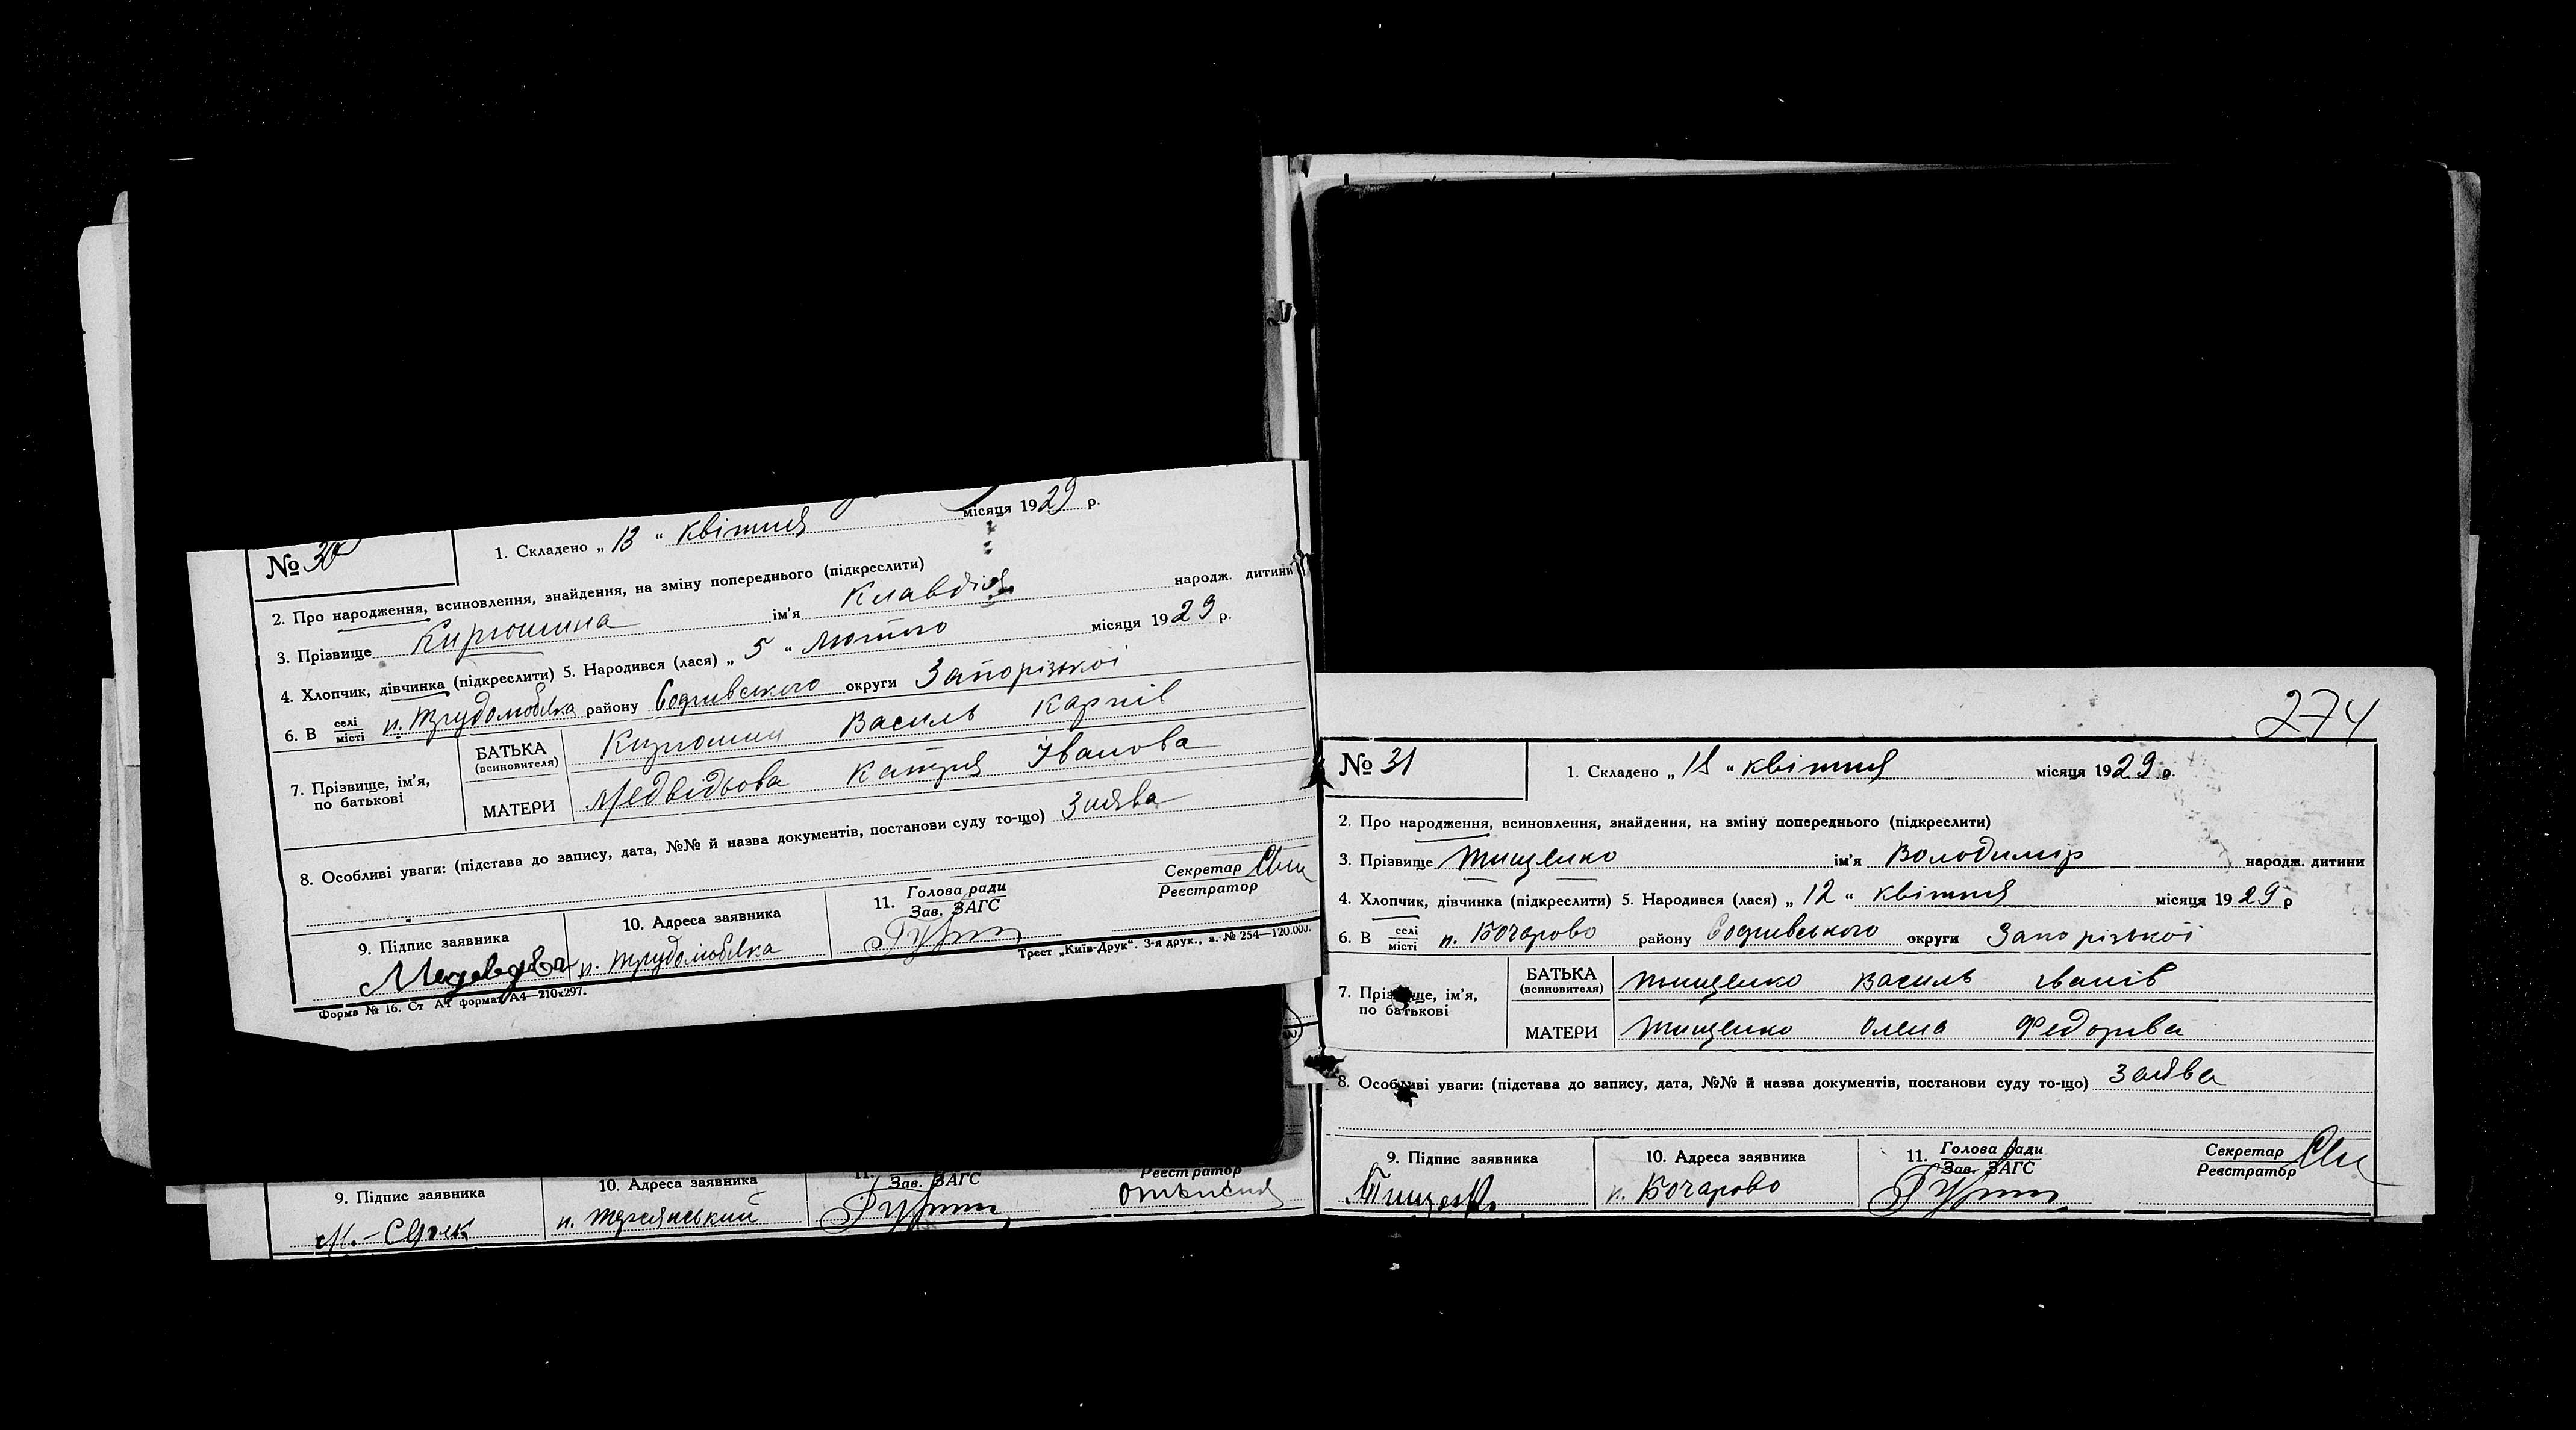 № 30
1. Складено „ 13 “ квітня місяця 1929 р.
2. Про народження, всиновлення, знайдення, на зміну попереднього (підкреслити)
3. Прізвище Кирюшина ім'я Клавдія народж. дитини
4. Хлопчик, дівчинка (підкреслити) 5. Народився (лася) „ 5 “ лютого місяця 1929 р.
6. В селі місті п. Трудолюбівка району Софіївського округи Запорізької
7. Прізвище, ім'я, по батькові
БАТЬКА (всиновителя) Кирюшин Василь Карпів
МАТЕРИ Медвідьова Катря Іванова
8. Особливі уваги: (підстава до запису, дата, №№ й назва документів, постанови суду то-що) Заява
9. Підпис заявника
10. Адреса заявника
п. Трудолюбівка
11. Голова ради
Зав. ЗАГС
Секретар
Реєстратор
Форма № 16. Ст А4 формат А4—210х297.
Трест „Київ-Друк“. 3-я друк., з. № 254—120.000.
9. Підпис заявника
10. Адреса заявника
11.
Зав. ЗАГС
Реєстратор
274
№ 31
1. Складено „ 18 “ квітня місяця 1929 р.
2. Про народження, всиновлення, знайдення, на зміну попереднього (підкреслити)
3. Прізвище Тищенко ім'я Володимір народж. дитини
4. Хлопчик, дівчинка (підкреслити) 5. Народився (лася) „ 12 “ квітня місяця 1929 р
6. В селі місті п. Бочарово району Софіївського округи Запорізької
7. Прізвище, ім'я, по батькові
БАТЬКА (всиновителя) Тищенко Василь Іванів
МАТЕРИ Тищенко Олена Федорівa
8. Особливі уваги: (підстава до запису, дата, №№ й назва документів, постанови суду то-що) Заява
9. Підпис заявника
10. Адреса заявника
п. Бочарово
11. Голова ради
Зав. ЗАГС
Секретар
Реєстратор